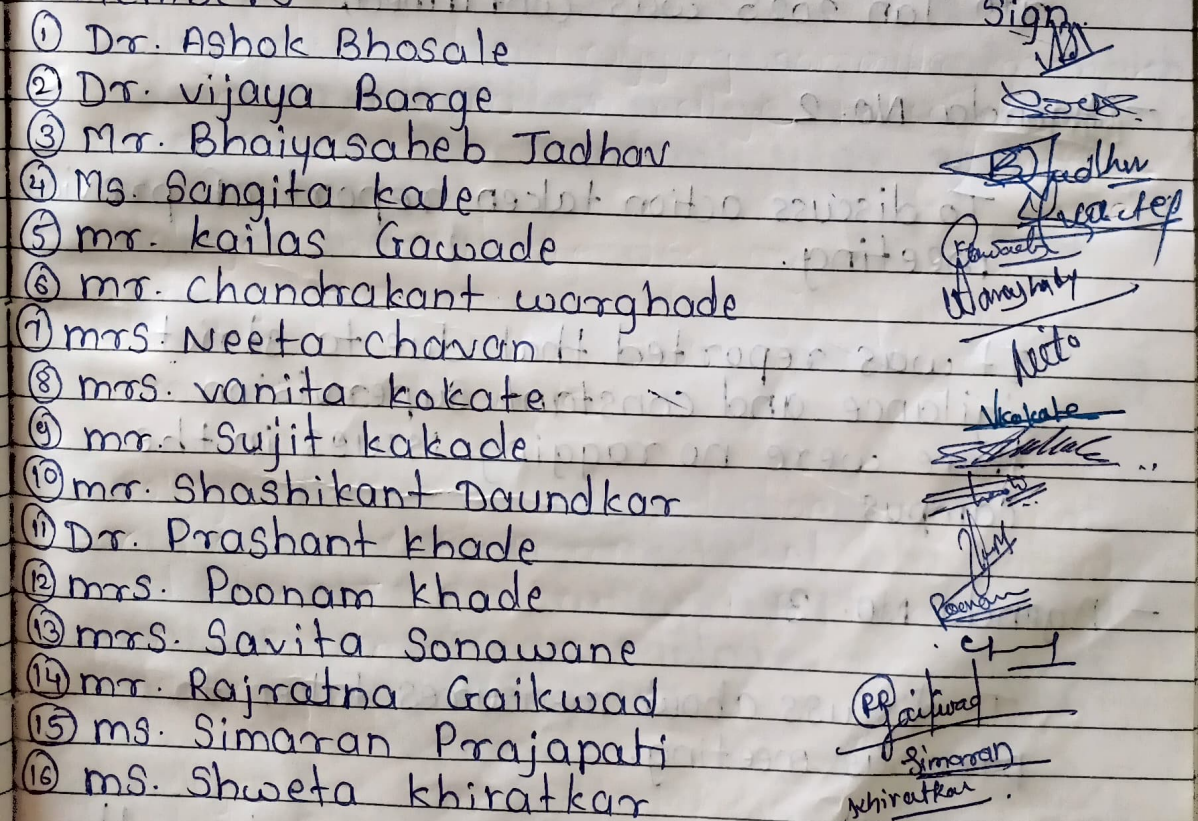 Sign
① Dr. Ashok Bhosale
② Dr. vijaya Barge
③ Mr. Bhaiyasaheb Jadhav BJadhav
④ Ms. Sangita kale
⑤ mr. kailas Gawade
⑥ mr. chandrakant warghade
⑦ mrs. Neeta chavan Neeta
⑧ mrs. vanita kokate Vkokate
⑨ mr. Sujit kakade
⑩ mr. Shashikant Daundkar
⑪ Dr. Prashant khade
⑫ mrs. Poonam khade Poonam
⑬ mrs. Savita Sonawane
⑭ mr. Rajratna Gaikwad RRGaikwad
⑮ ms. Simaran Prajapati Simaran
⑯ ms. Shweta khiratkar skhiratkar